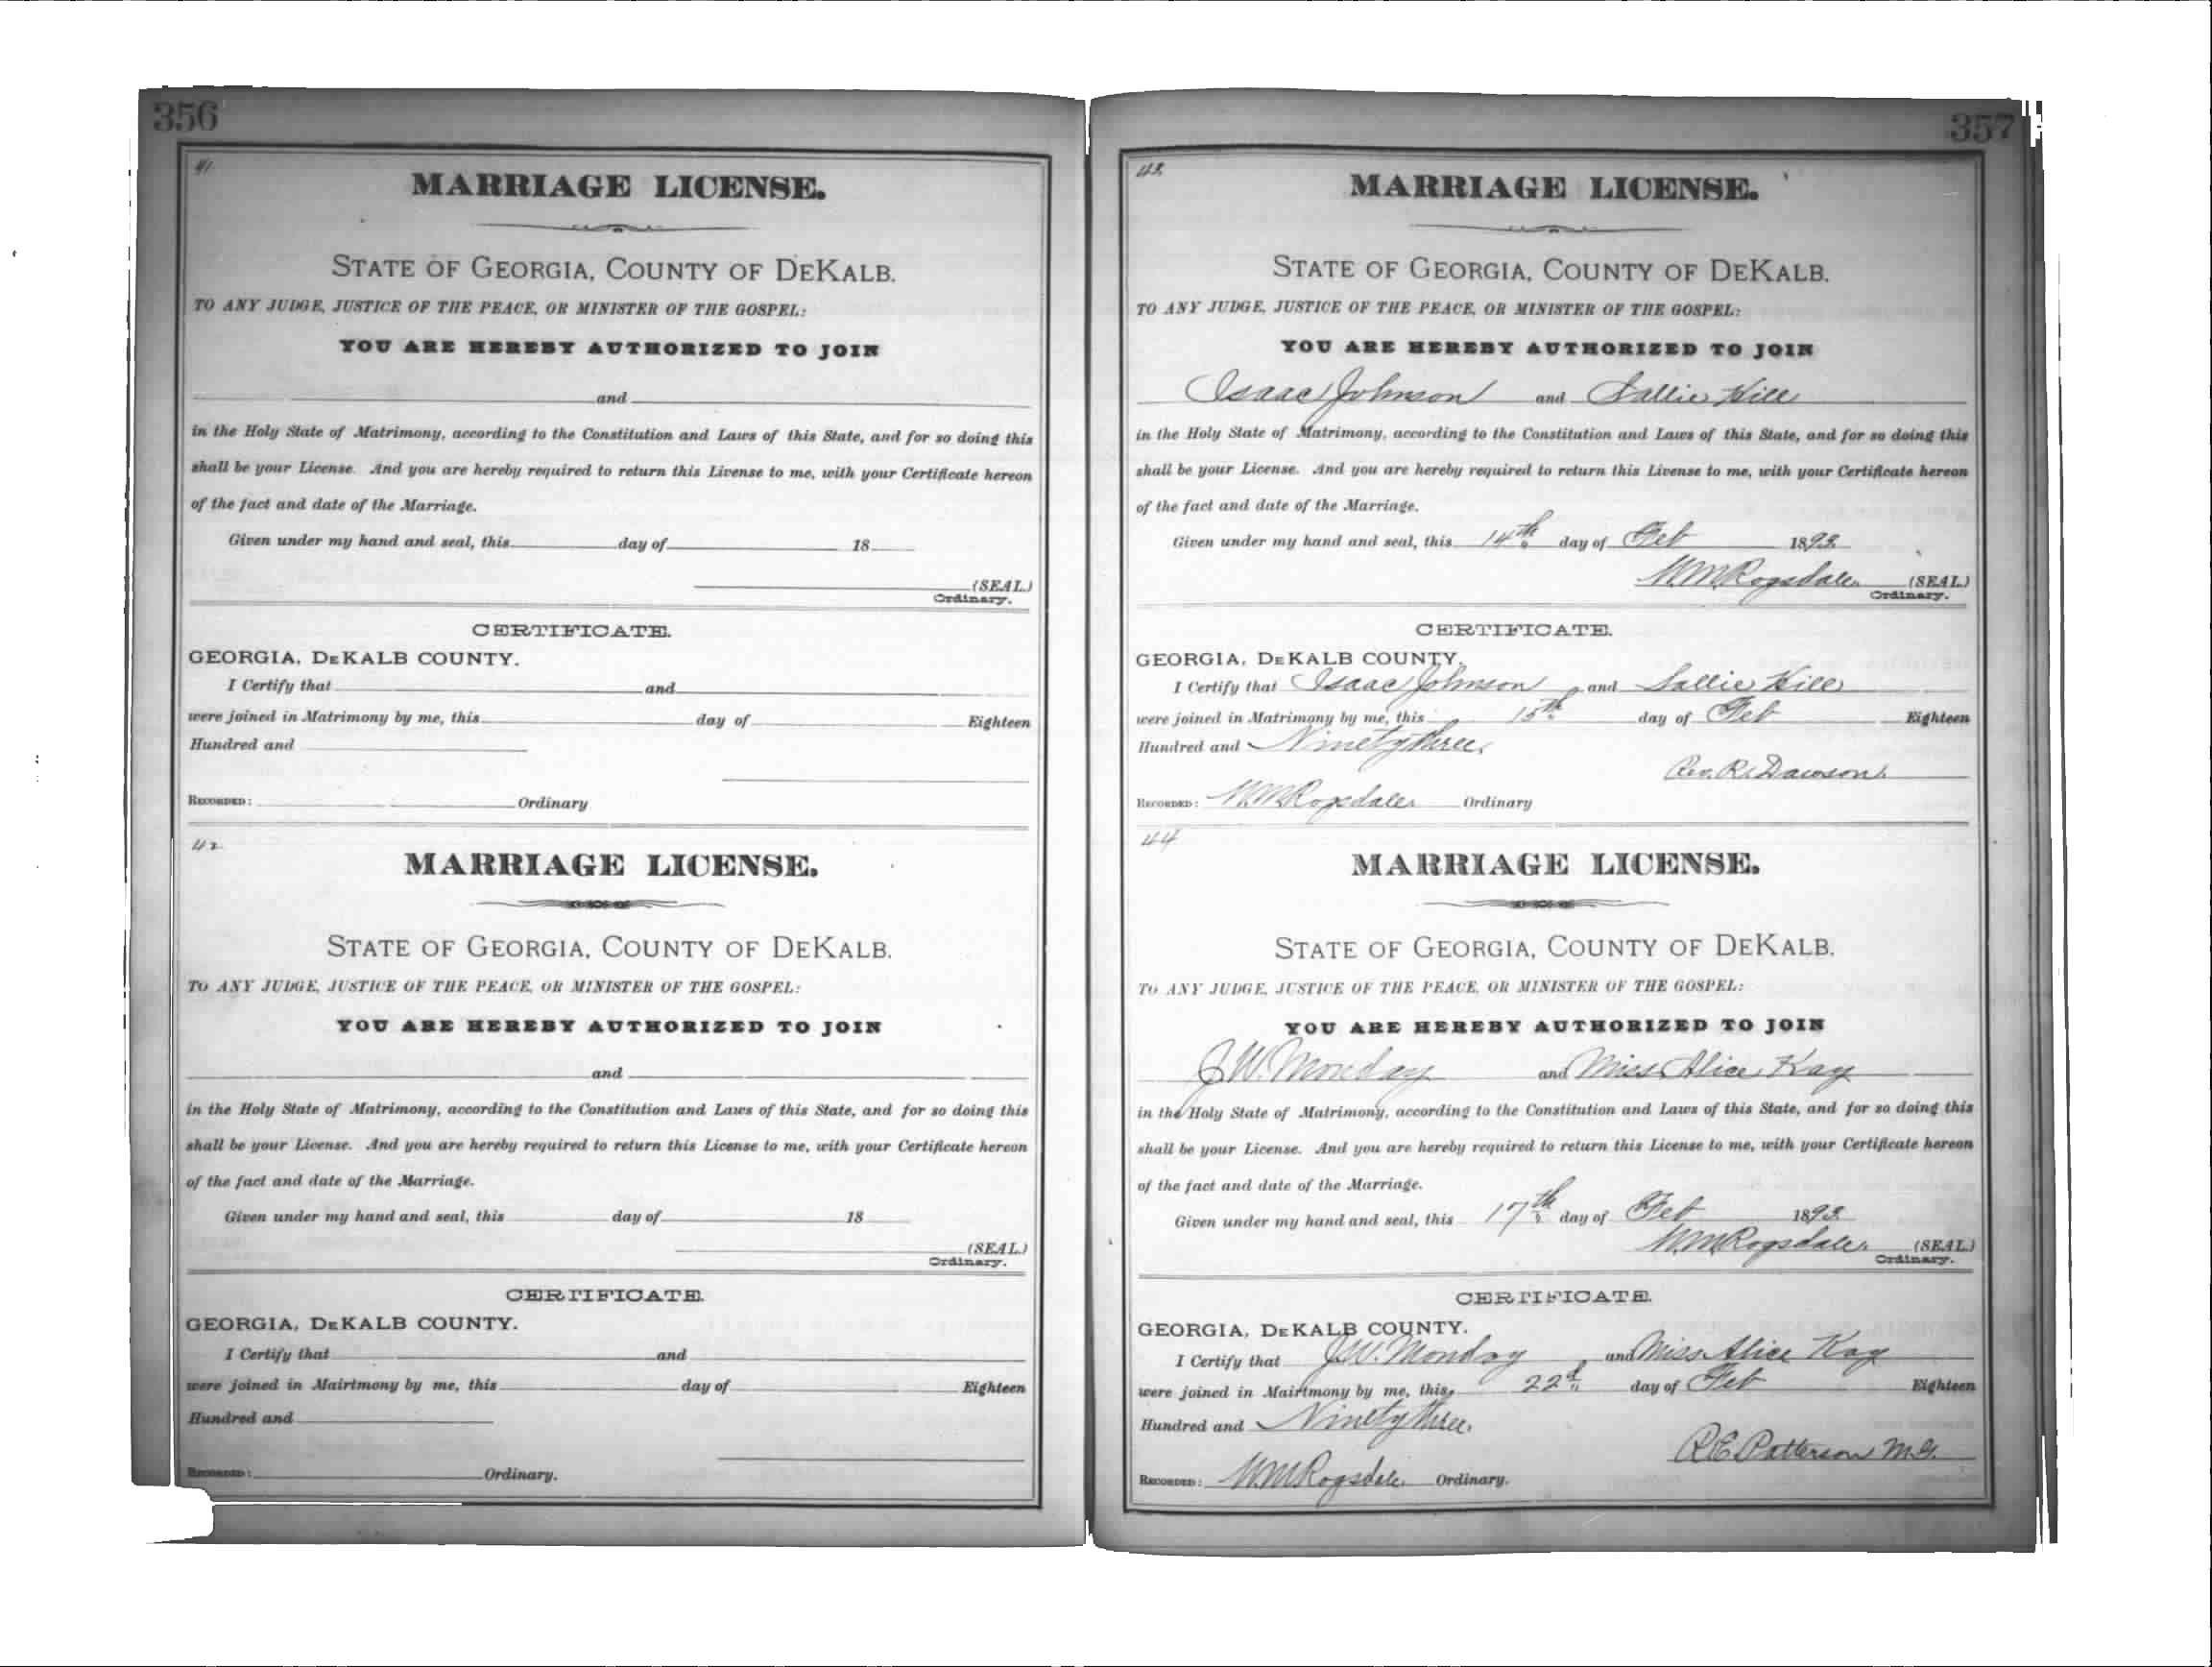 356
41
MARRIAGE LICENSE.
STATE OF GEORGIA, COUNTY OF DEKALB.
TO ANY JUDGE, JUSTICE OF THE PEACE, OR MINISTER OF THE GOSPEL:
YOU ARE HEREBY AUTHORIZED TO JOIN
and
in the Holy State of Matrimony, according to the Constitution and Laws of this State, and for so doing this
shall be your License. And you are hereby required to return this License to me, with your Certificate hereon
of the fact and date of the Marriage.
Given under my hand and seal, this day of 18
(SEAL)
Ordinary.
CERTIFICATE.
GEORGIA, DEKALB COUNTY.
I Certify that and
were joined in Matrimony by me, this day of Eighteen
Hundred and
RECORDED: Ordinary
42
MARRIAGE LICENSE.
STATE OF GEORGIA, COUNTY OF DEKALB.
TO ANY JUDGE, JUSTICE OF THE PEACE, OR MINISTER OF THE GOSPEL:
YOU ARE HEREBY AUTHORIZED TO JOIN
and
in the Holy State of Matrimony, according to the Constitution and Laws of this State, and for so doing this
shall be your License. And you are hereby required to return this License to me, with your Certificate hereon
of the fact and date of the Marriage.
Given under my hand and seal, this day of 18
(SEAL)
Ordinary.
CERTIFICATE.
GEORGIA, DEKALB COUNTY.
I Certify that and
were joined in Mairtmony by me, this day of Eighteen
Hundred and
RECORDED: Ordinary.
357
43
MARRIAGE LICENSE.
STATE OF GEORGIA, COUNTY OF DEKALB.
TO ANY JUDGE, JUSTICE OF THE PEACE, OR MINISTER OF THE GOSPEL:
YOU ARE HEREBY AUTHORIZED TO JOIN
Isaac Johnson and Sallie Hill
in the Holy State of Matrimony, according to the Constitution and Laws of this State, and for so doing this
shall be your License. And you are hereby required to return this License to me, with your Certificate hereon
of the fact and date of the Marriage.
Given under my hand and seal, this 14th day of Feb 1893
W.M. Ragsdale (SEAL)
Ordinary.
CERTIFICATE.
GEORGIA, DEKALB COUNTY.
I Certify that Isaac Johnson and Sallie Hill
were joined in Matrimony by me, this 15th day of Feb Eighteen
Hundred and Ninety three
Rev. R. Dawson
RECORDED: W.M. Ragsdale Ordinary
44
MARRIAGE LICENSE.
STATE OF GEORGIA, COUNTY OF DEKALB.
TO ANY JUDGE, JUSTICE OF THE PEACE, OR MINISTER OF THE GOSPEL:
YOU ARE HEREBY AUTHORIZED TO JOIN
J.W. Monday and Miss Alice Kay
in the Holy State of Matrimony, according to the Constitution and Laws of this State, and for so doing this
shall be your License. And you are hereby required to return this License to me, with your Certificate hereon
of the fact and date of the Marriage.
Given under my hand and seal, this 17th day of Feb 1893
W.M. Ragsdale (SEAL)
Ordinary.
CERTIFICATE.
GEORGIA, DEKALB COUNTY.
I Certify that J.W. Monday and Miss Alice Kay
were joined in Mairtmony by me, this 22d day of Feb Eighteen
Hundred and Ninety three
R.E. Patterson M.G.
RECORDED: W.M. Ragsdale Ordinary.